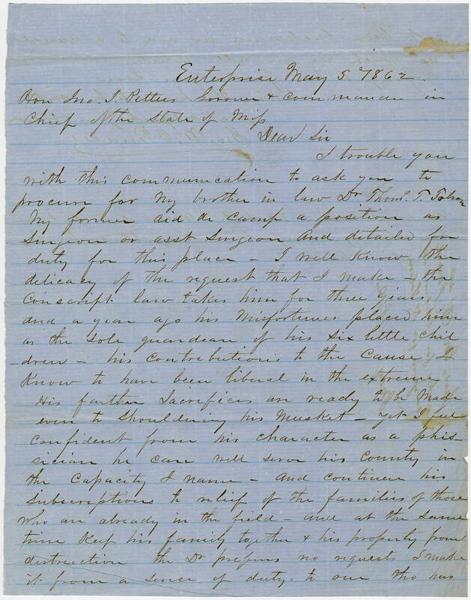 Enterprise May 5 1862
Hon Jno. J. Pettus Govnor & Commander in
Chief of the State of Miss
Dear Sir
I trouble you
with this communication to ask you to
procure for my brother in law Dr Thoms. T.
My former aid de camp a position as
Surgeon or asst Surgeon And detailed for
duty for this place - I well know the
delicacy of the request that I make - the
Conscript law takes him for three years
and a year ago his Misfortunes placed him
as the Sole guardean of his Six little Chil
dren - his contributions to the Cause I
Know to have been liberal in the extreme
His farther Sacrafices are ready to be Made
even to Shouldering his Musket - yet I feel
confident from his character as a phis
sician he can well serve his Country in
the Capacity I name - And continue his
Subscriptions to relief of the families of those
who are already in the field - and at the same
time Keep his family together & his property from
distruction the Dr prefers no request I make
it from a sence of duty to one who has